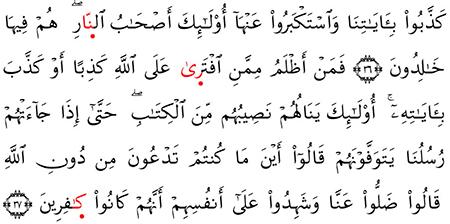 كَذَّبُوا۟ بِـَٔايَـٰتِنَا وَٱسْتَكْبَرُوا۟ عَنْهَآ أُو۟لَـٰٓئِكَ أَصْحَـٰبُ ٱلنَّارِ ۖ هُمْ فِيهَا
خَـٰلِدُونَ ﴿٣٦﴾ فَمَنْ أَظْلَمُ مِمَّنِ ٱفْتَرَىٰ عَلَى ٱللَّهِ كَذِبًا أَوْ كَذَّبَ
بِـَٔايَـٰتِهِۦٓ ۚ أُو۟لَـٰٓئِكَ يَنَالُهُمْ نَصِيبُهُم مِّنَ ٱلْكِتَـٰبِ ۖ حَتَّىٰٓ إِذَا جَآءَتْهُمْ
رُسُلُنَا يَتَوَفَّوْنَهُمْ قَالُوٓا۟ أَيْنَ مَا كُنتُمْ تَدْعُونَ مِن دُونِ ٱللَّهِ
قَالُوا۟ ضَلُّوا۟ عَنَّا وَشَهِدُوا۟ عَلَىٰٓ أَنفُسِهِمْ أَنَّهُمْ كَانُوا۟ كَـٰفِرِينَ ﴿٣٧﴾